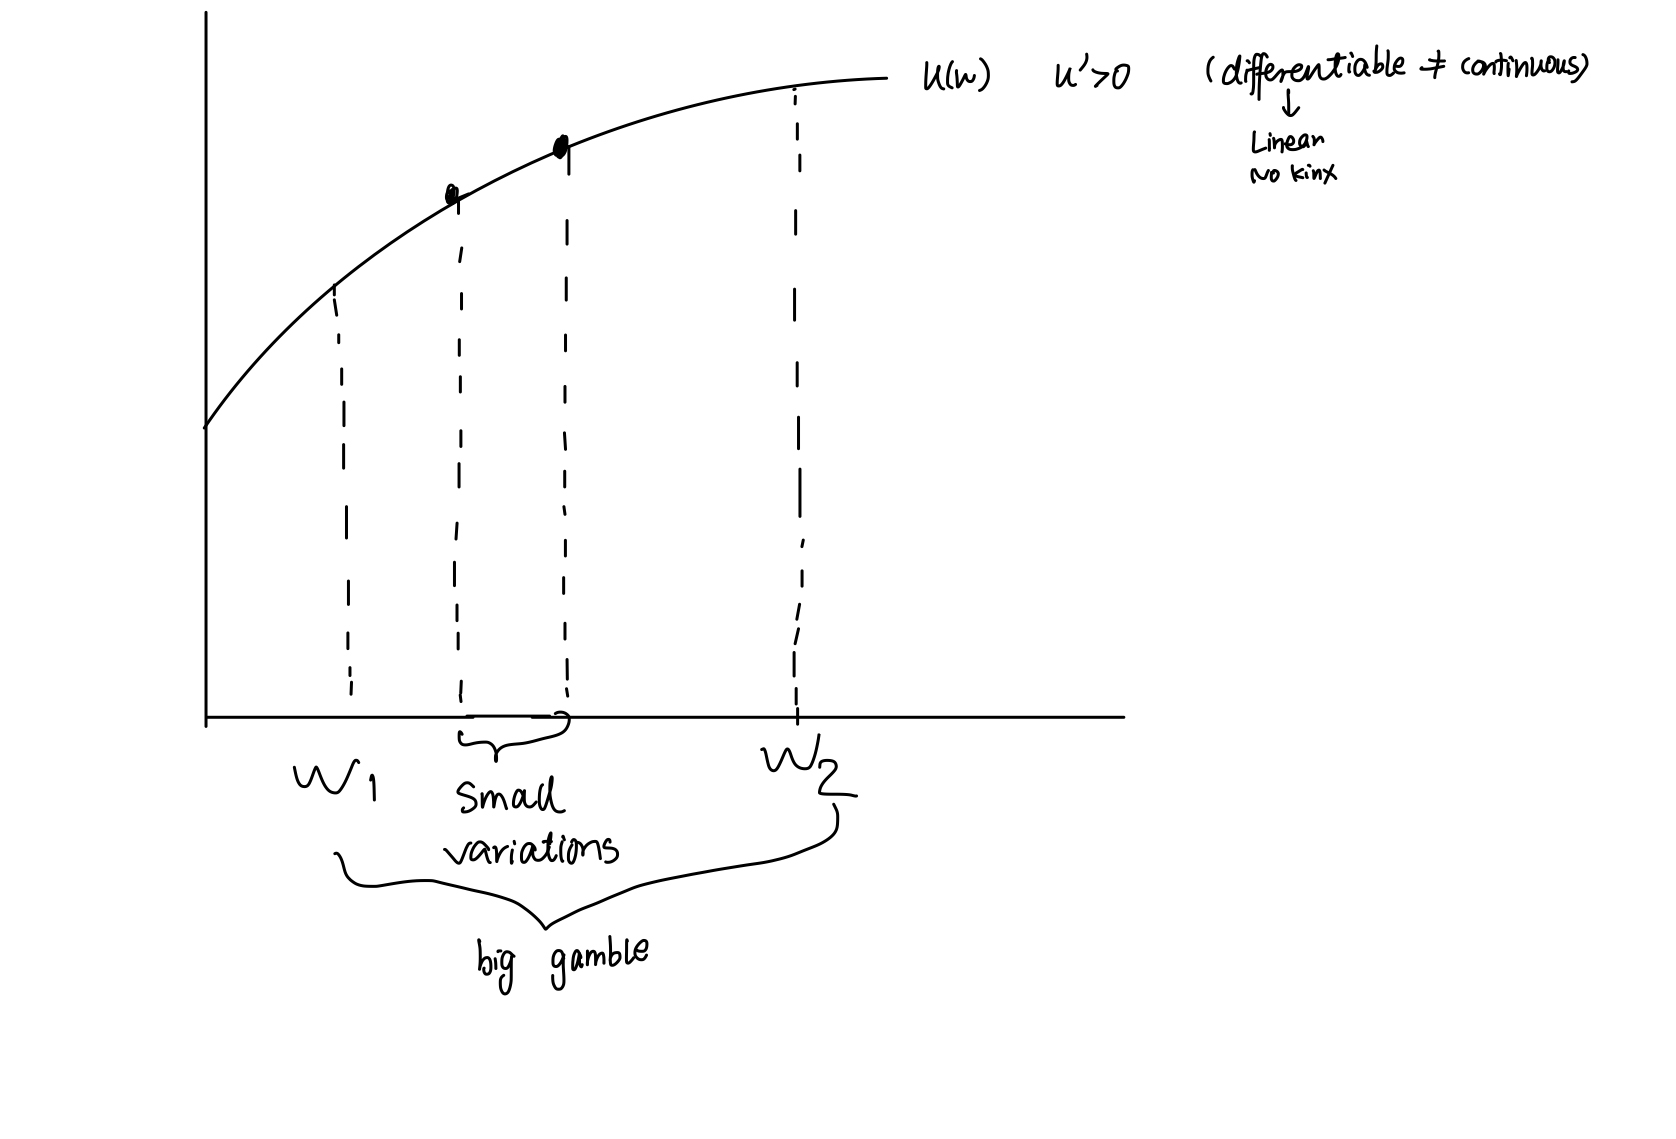 u(w) u'>0 (differentiable ≠ continuous)
↓
Linear
No kinx
W1
W2
small
variations
big gamble